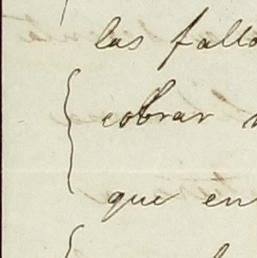 las fall
cobrar
que en